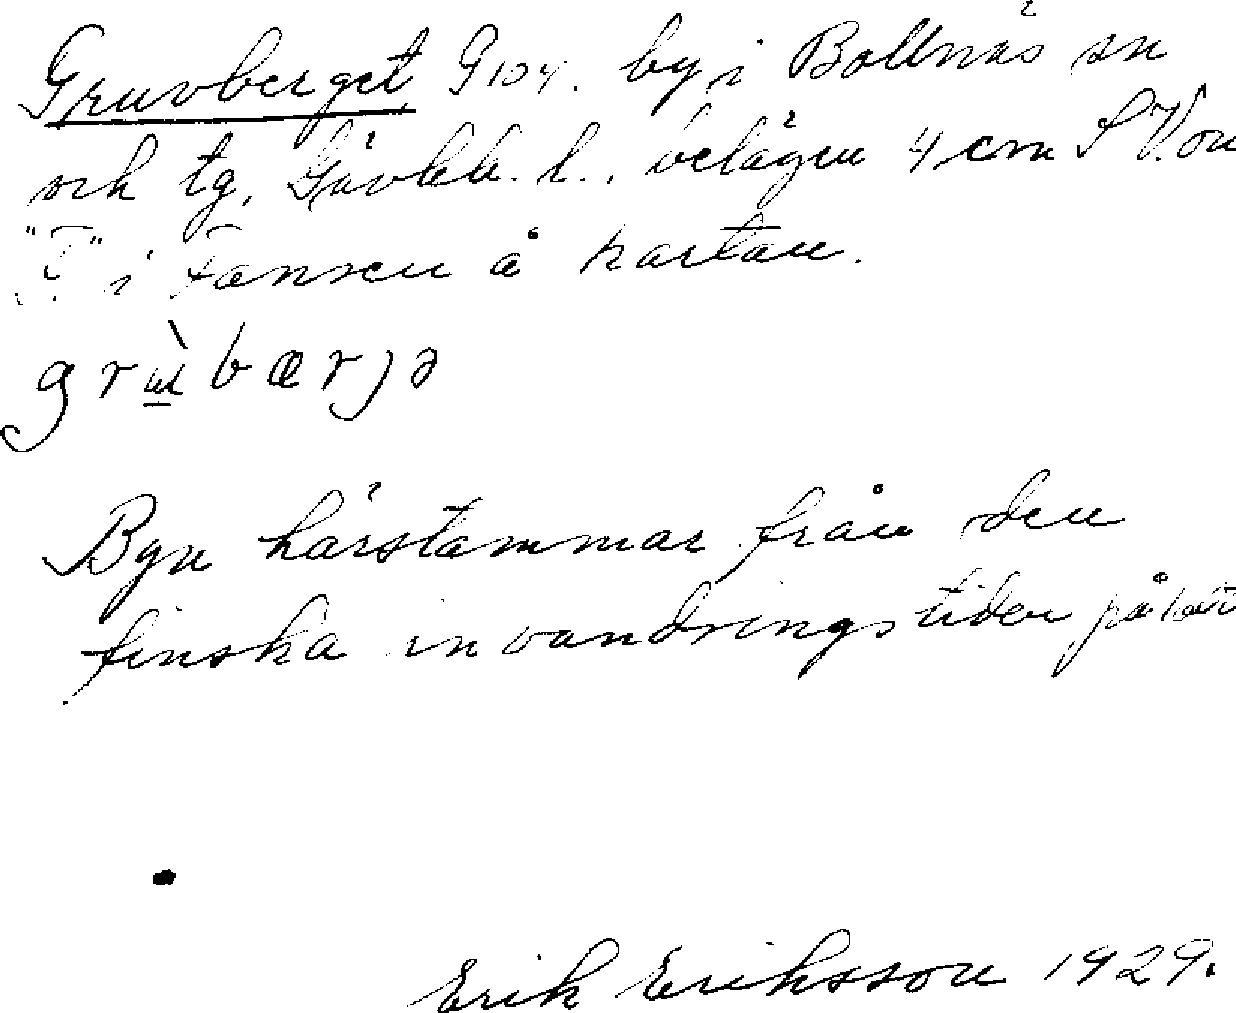 Gruvberget G104. by i Bollnäs sn
och tg, Gävleb. l., belägen 4 cm SV. om
"F" i Fansen å kartan.
grɯ̀bærjə
Byn härstammar från den
finska invandringstiden påstår
Erik Eriksson 1929.